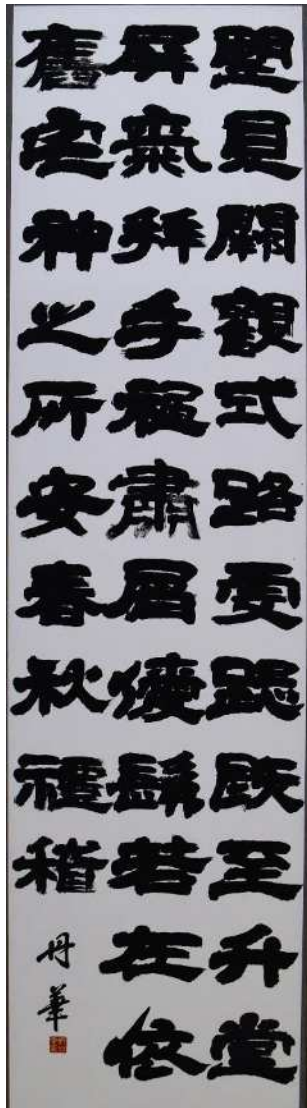 望見闕觀式路虔跽既至升堂
屏氣拜手祗肅屑僾髴若在依
舊宅神之所安春秋禮稽
丹華